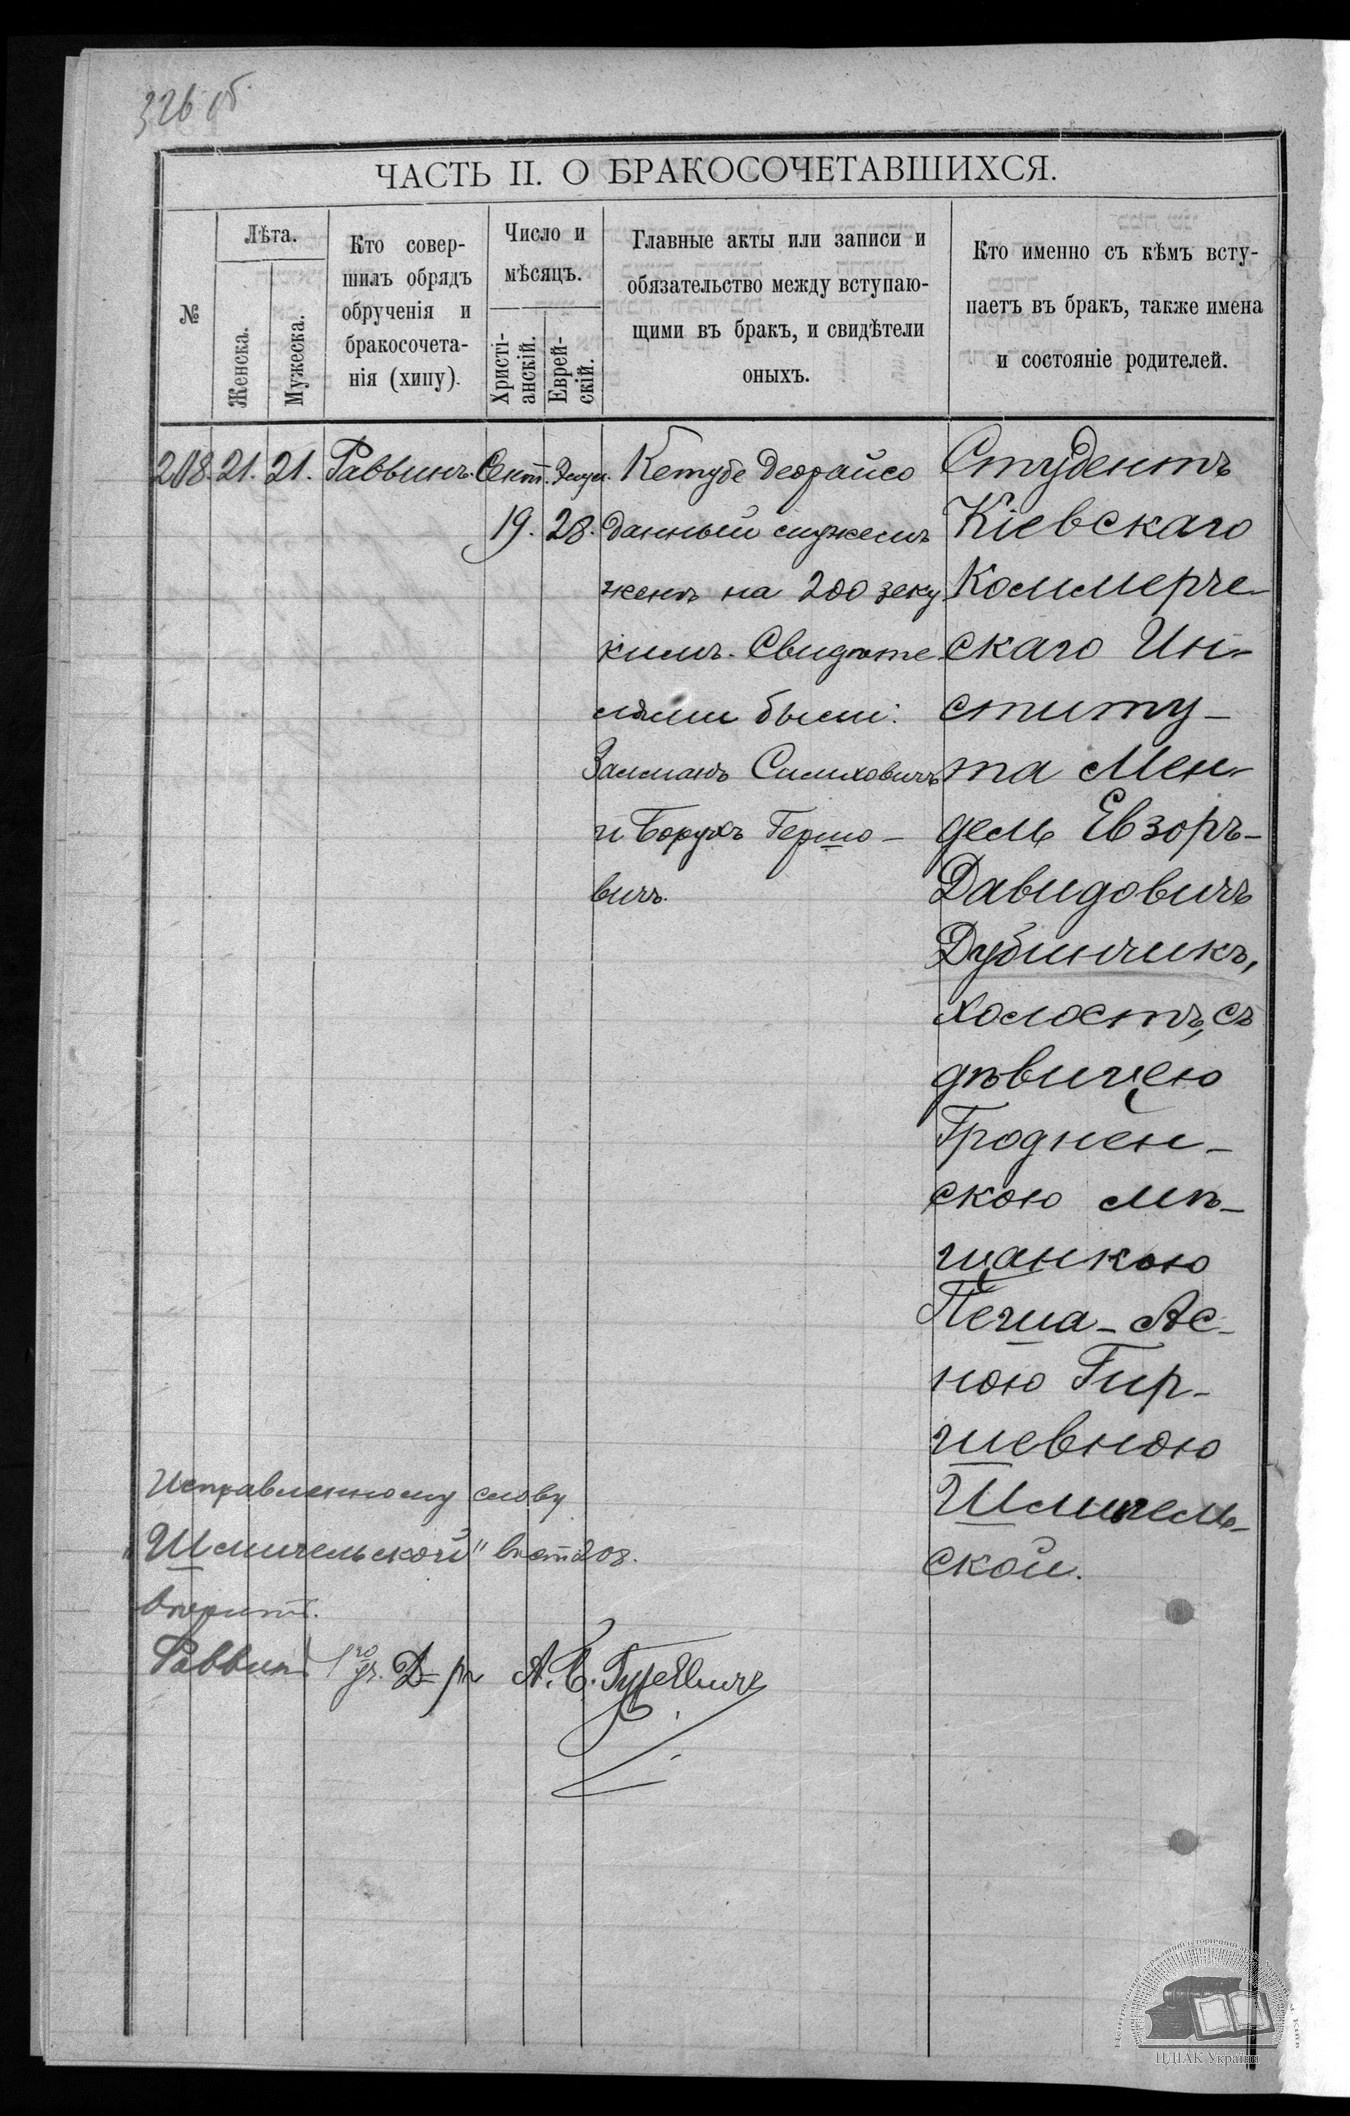 326 об.
ЧАСТЬ II. О БРАКОСОЧЕТАВШИХСЯ.
№
Лѣта.
Женска.
Мужеска.
Кто совер-
шилъ обрядъ
обрученія и
бракосочета-
нія (хипу).
Число и
мѣсяцъ.
Христі-
анскій.
Еврей-
скій.
Главные акты или записи и
обязательство между вступаю-
щими въ бракъ, и свидѣтели
оныхъ.
Кто именно съ кѣмъ всту-
паетъ въ бракъ, также имена
и состояніе родителей.
208. 21. 21. Раввинъ. Сент. Элул.
19. 28.
Кетубе Деорайсо
данный мужемъ
женѣ на 200 зеку
кимъ. Свидѣте-
лями были:
Залманъ Симховичъ
и Борухъ Гершо-
вичъ.
Студентъ
Кіевскаго
Коммерче-
скаго Ин-
ститу-
та Мен-
дель Евзоръ-
Давидовичъ
Дубинчикъ,
холостъ, съ
дѣвицею
Гроднен-
скою мѣ-
щанкою
Песша-Ас-
ною Гир-
шевною
Шмигель-
ской.
Исправленному слову
"Шмигельской" въ ст 208.
вѣрить.
Раввинъ 1го уч. Д-ръ А. Б. Гуревичъ
ЦДІАК України